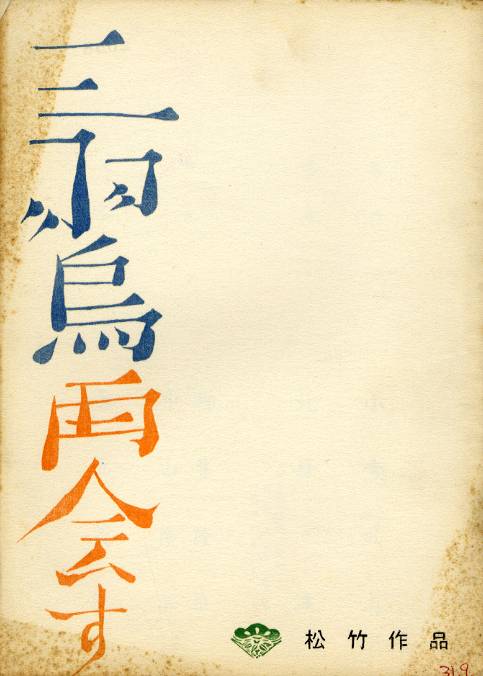 三羽烏再会す
松竹作品
319